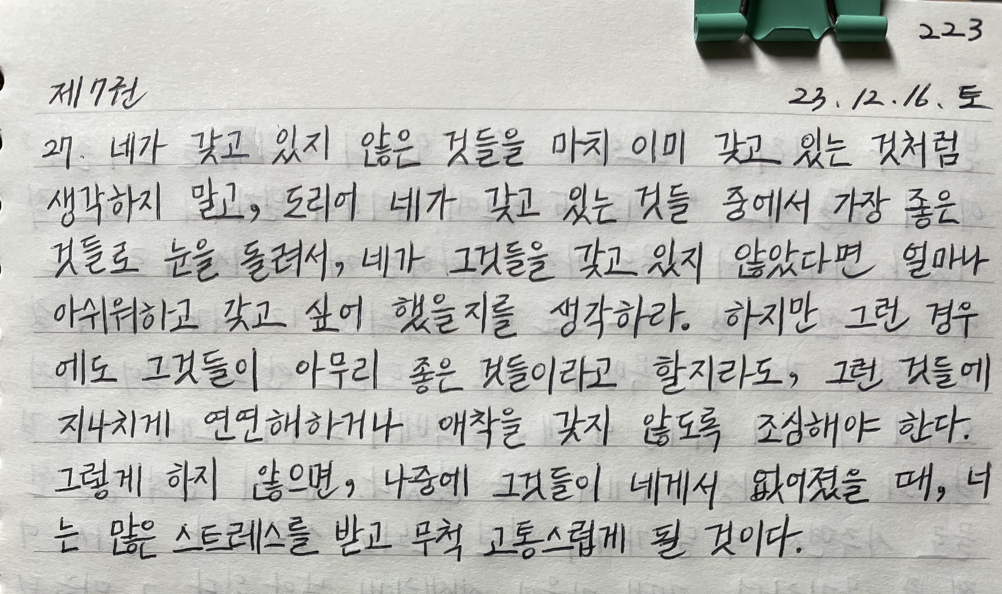 223
제7권 23.12.16. 토
27. 네가 갖고 있지 않은 것들을 마치 이미 갖고 있는 것처럼
생각하지 말고, 도리어 네가 갖고 있는 것들 중에서 가장 좋은
것들로 눈을 돌려서, 네가 그것들을 갖고 있지 않았다면 얼마나
아쉬워하고 갖고 싶어 했을지를 생각하라. 하지만 그런 경우
에도 그것들이 아무리 좋은 것들이라고 할지라도, 그런 것들에
지나치게 연연해하거나 애착을 갖지 않도록 조심해야 한다.
그렇게 하지 않으면, 나중에 그것들이 네게서 없어졌을 때, 너
는 많은 스트레스를 받고 무척 고통스럽게 될 것이다.